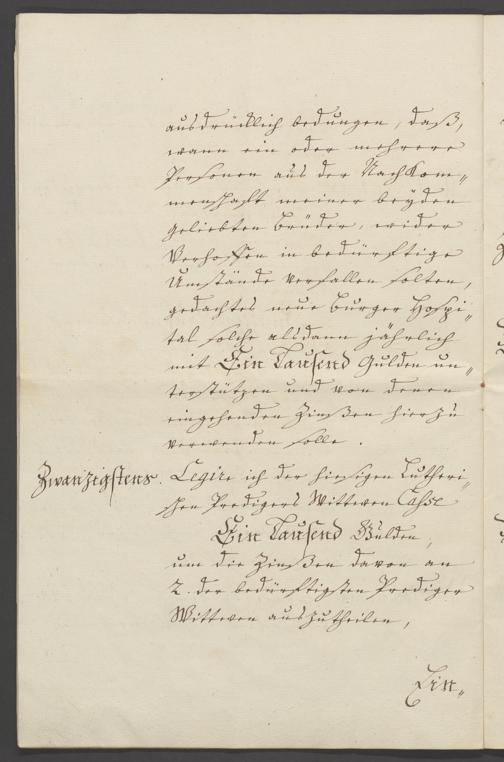 ausdrücklich bedungen, daß,
wann ein oder mehrere
Personen aus der Nachkom„
menschaft meiner beyden
geliebten Brüder, wider
Verhoffen in bedürftige
Umstände verfallen solten,
gedachtes neue Burger Hospi„
tal solche alsdann jährlich
mit Ein Tausend Gulden un„
terstützen und von denen
eingehenden Zinßen hierzu
verwenden solle.
Zwanzigstens. Legire ich der hiesigen Lutheri„
schen Predigers Wittwen Casse
Ein Tausend Gulden,
um die Zinßen davon an
2. der bedürftigsten Prediger
Wittwen auszutheilen,
Ein„